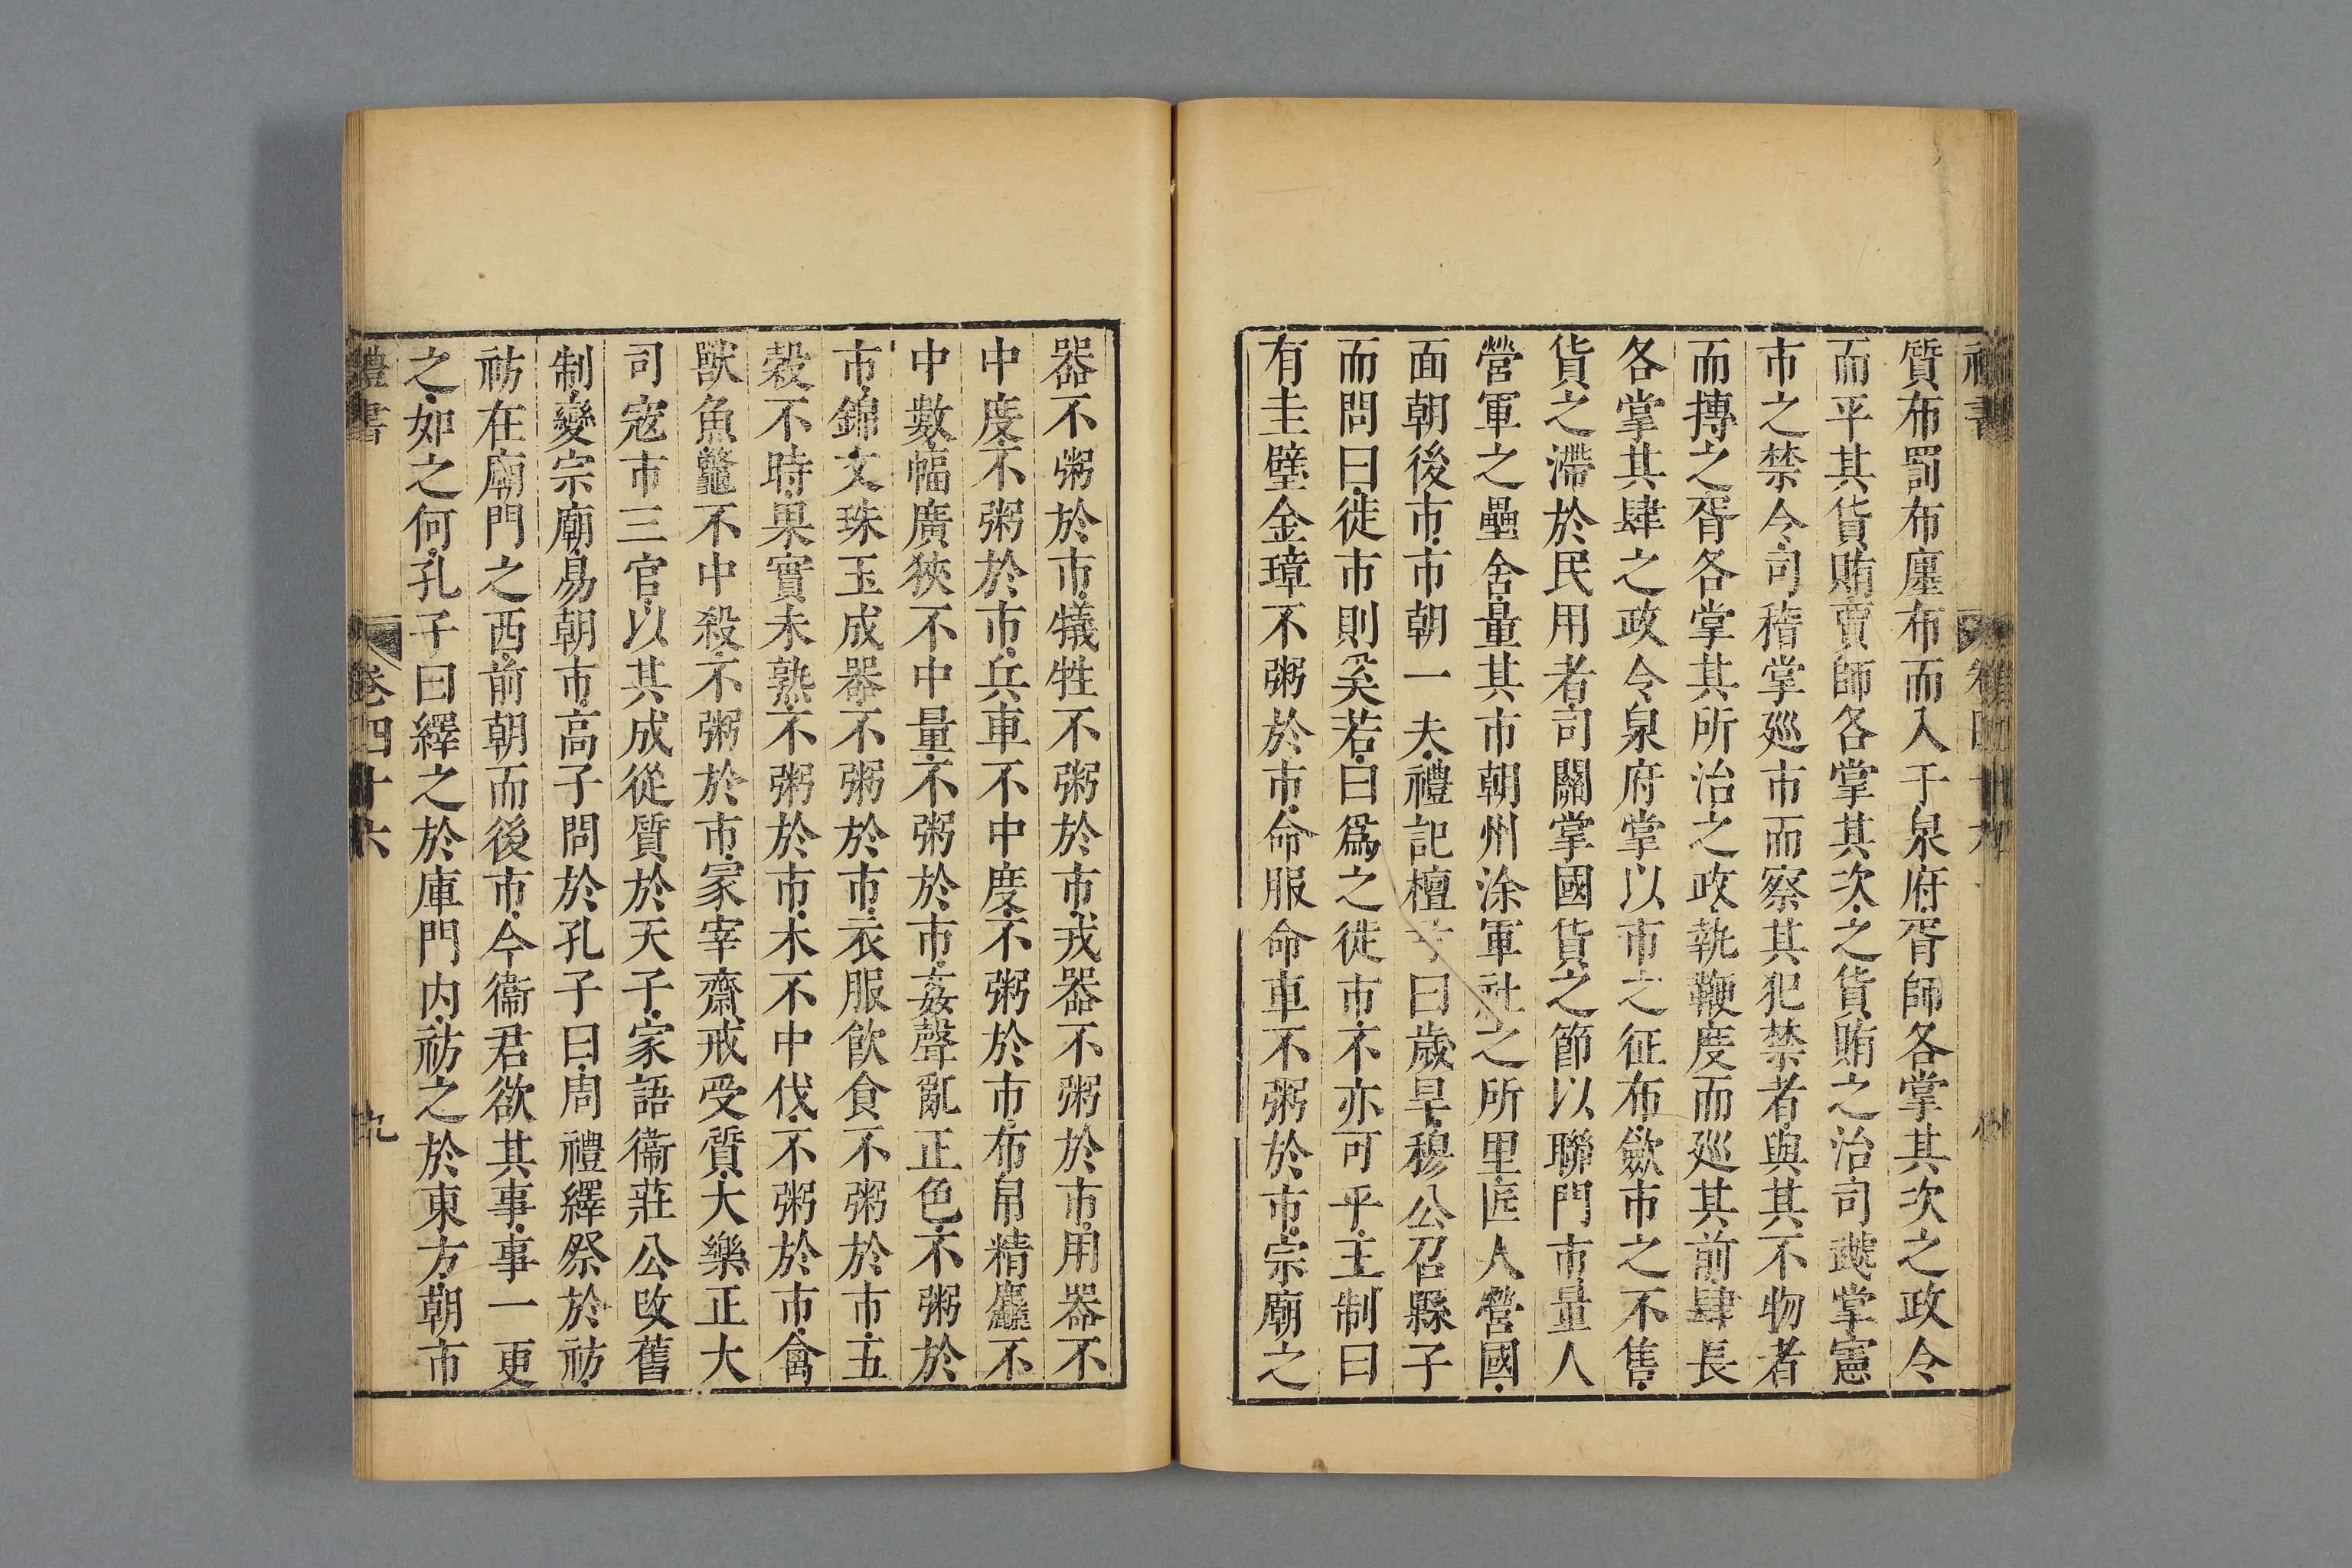 質布罰布廛布而入于泉府胥師各掌其次之政令
而平其貨賄賈師各掌其次之貨賄之治司虣掌憲
市之禁令司稽掌廵市而察其犯禁者與其不物者
而摶之胥各掌其所治之政執鞭度而廵其前肆長
各掌其肆之政令泉府掌以市之征布歛市之不售
貨之滯於民用者司關掌國貨之節以聯門市量人
營軍之壘舍量其市朝州涂軍社之所里匠人營國
面朝後市市朝一夫禮記檀弓曰歲旱穆公召縣子
而問曰徙市則奚若曰爲之徙市不亦可乎王制曰
有圭璧金璋不粥於市命服命車不粥於市宗廟之
器不粥於市犧牲不粥於市戎器不粥於市用器不
中度不粥於市兵車不中度不粥於市布帛精麤不
中數幅廣狹不中量不粥於市姦聲亂正色不粥於
市錦文珠玉成器不粥於市衣服飲食不粥於市五
穀不時果實未熟不粥於市木不中伐不粥於市禽
獸魚鼈不中殺不粥於市冡宰齋戒受質大樂正大
司宼市三官以其成從質於天子家語衞莊公改舊
制變宗廟易朝市高子問於孔子曰周禮繹祭於祊
祊在廟門之西前朝而後市今衞君欲其事事一更
之如之何孔子曰繹之於庫門内祊之於東方朝市
禮書
卷四十六